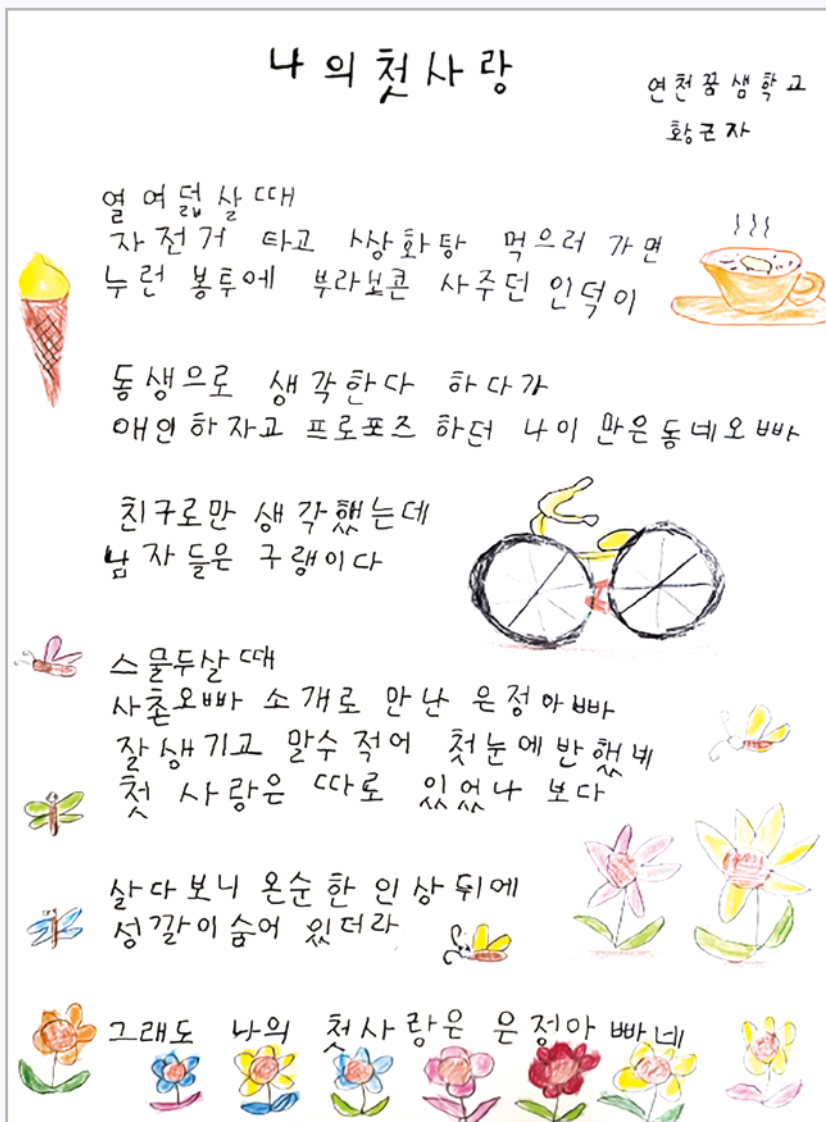 나의 첫사랑
연천꿈샘학교
황근자
열 여덟 살 때
자전거 타고 쌍화탕 먹으러 가면
누런 봉투에 부라보콘 사주던 인덕이
동생으로 생각한다 하다가
애인하자고 프로포즈 하던 나이 만은동네오빠
친구로만 생각했는데
남자들은 구랭이다
스물두살 때
사촌오빠 소개로 만난 은정아빠
잘생기고 말수 적어 첫눈에반했네
첫 사랑은 따로 있었나 보다
살다보니 온순한 인상 뒤에
성깔이숨어 있더라
그래도 나의 첫사랑은 은정아빠네